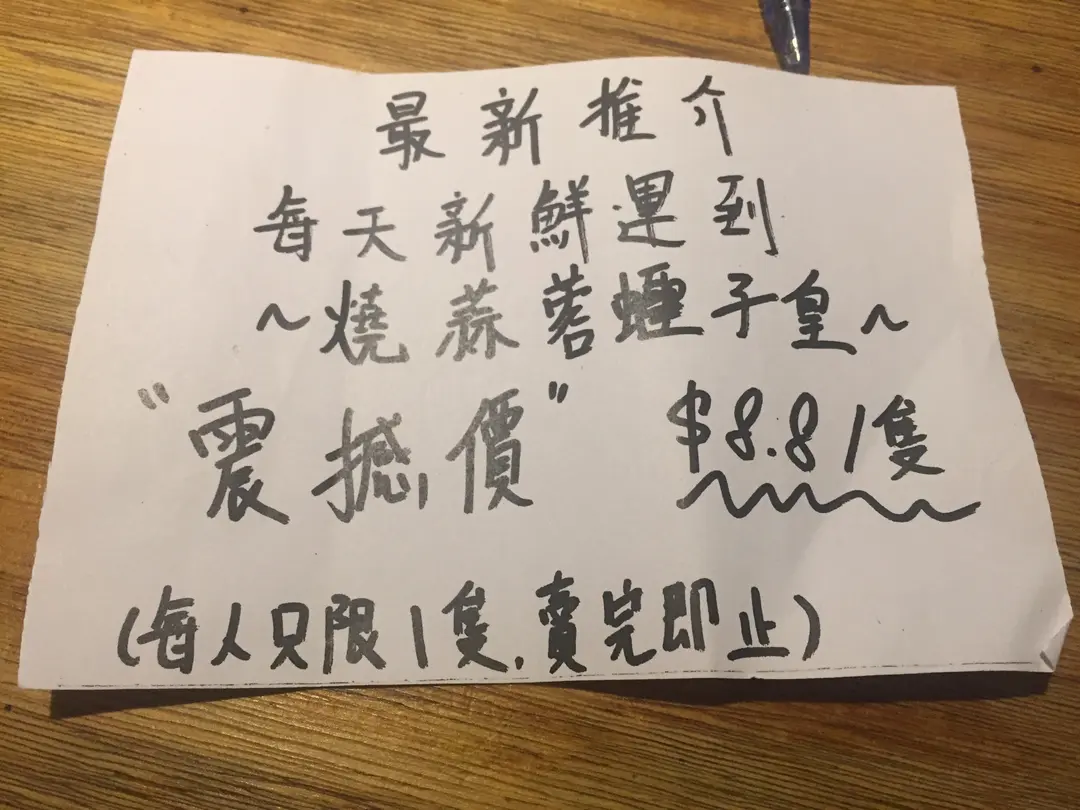 最新推介
每天新鮮運到
~燒蒜蓉蟶子皇~
"震撼價" $8.8/隻
(每人只限1隻,賣完即止)